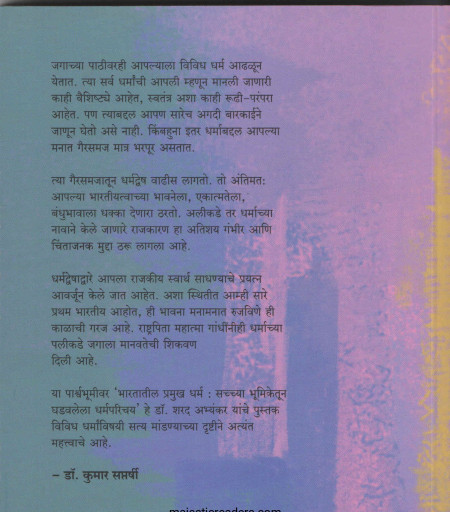 जगाच्या पाठीवरही आपल्याला विविध धर्म आढळून
येतात. त्या सर्व धर्मांची आपली म्हणून मानली जाणारी
काही वैशिष्ट्ये आहेत, स्वतंत्र अशा काही रूढी-परंपरा
आहेत. पण त्याबद्दल आपण सारेच अगदी बारकाईने
जाणून घेतो असे नाही. किंबहुना इतर धर्मांबद्दल आपल्या
मनात गैरसमज मात्र भरपूर असतात.
त्या गैरसमजातून धर्मद्वेष वाढीस लागतो. तो अंतिमत:
आपल्या भारतीयत्वाच्या भावनेला, एकात्मतेला,
बंधुभावाला धक्का देणारा ठरतो. अलीकडे तर धर्माच्या
नावाने केले जाणारे राजकारण हा अतिशय गंभीर आणि
चिंताजनक मुद्दा ठरू लागला आहे.
धर्मद्वेषाद्वारे आपला राजकीय स्वार्थ साधण्याचे प्रयत्न
आवर्जून केले जात आहेत. अशा स्थितीत आम्ही सारे
प्रथम भारतीय आहोत, ही भावना मनामनात रुजविणे ही
काळाची गरज आहे. राष्ट्रपिता महात्मा गांधींनीही धर्माच्या
पलीकडे जगाला मानवतेची शिकवण
दिली आहे.
या पार्श्वभूमीवर 'भारतातील प्रमुख धर्म : सच्च्या भूमिकेतून
घडवलेला धर्मपरिचय' हे डॉ. शरद अभ्यंकर यांचे पुस्तक
विविध धर्मांविषयी सत्य मांडण्याच्या दृष्टीने अत्यंत
महत्त्वाचे आहे.
– डॉ. कुमार सप्तर्षी
majesticreaders.com